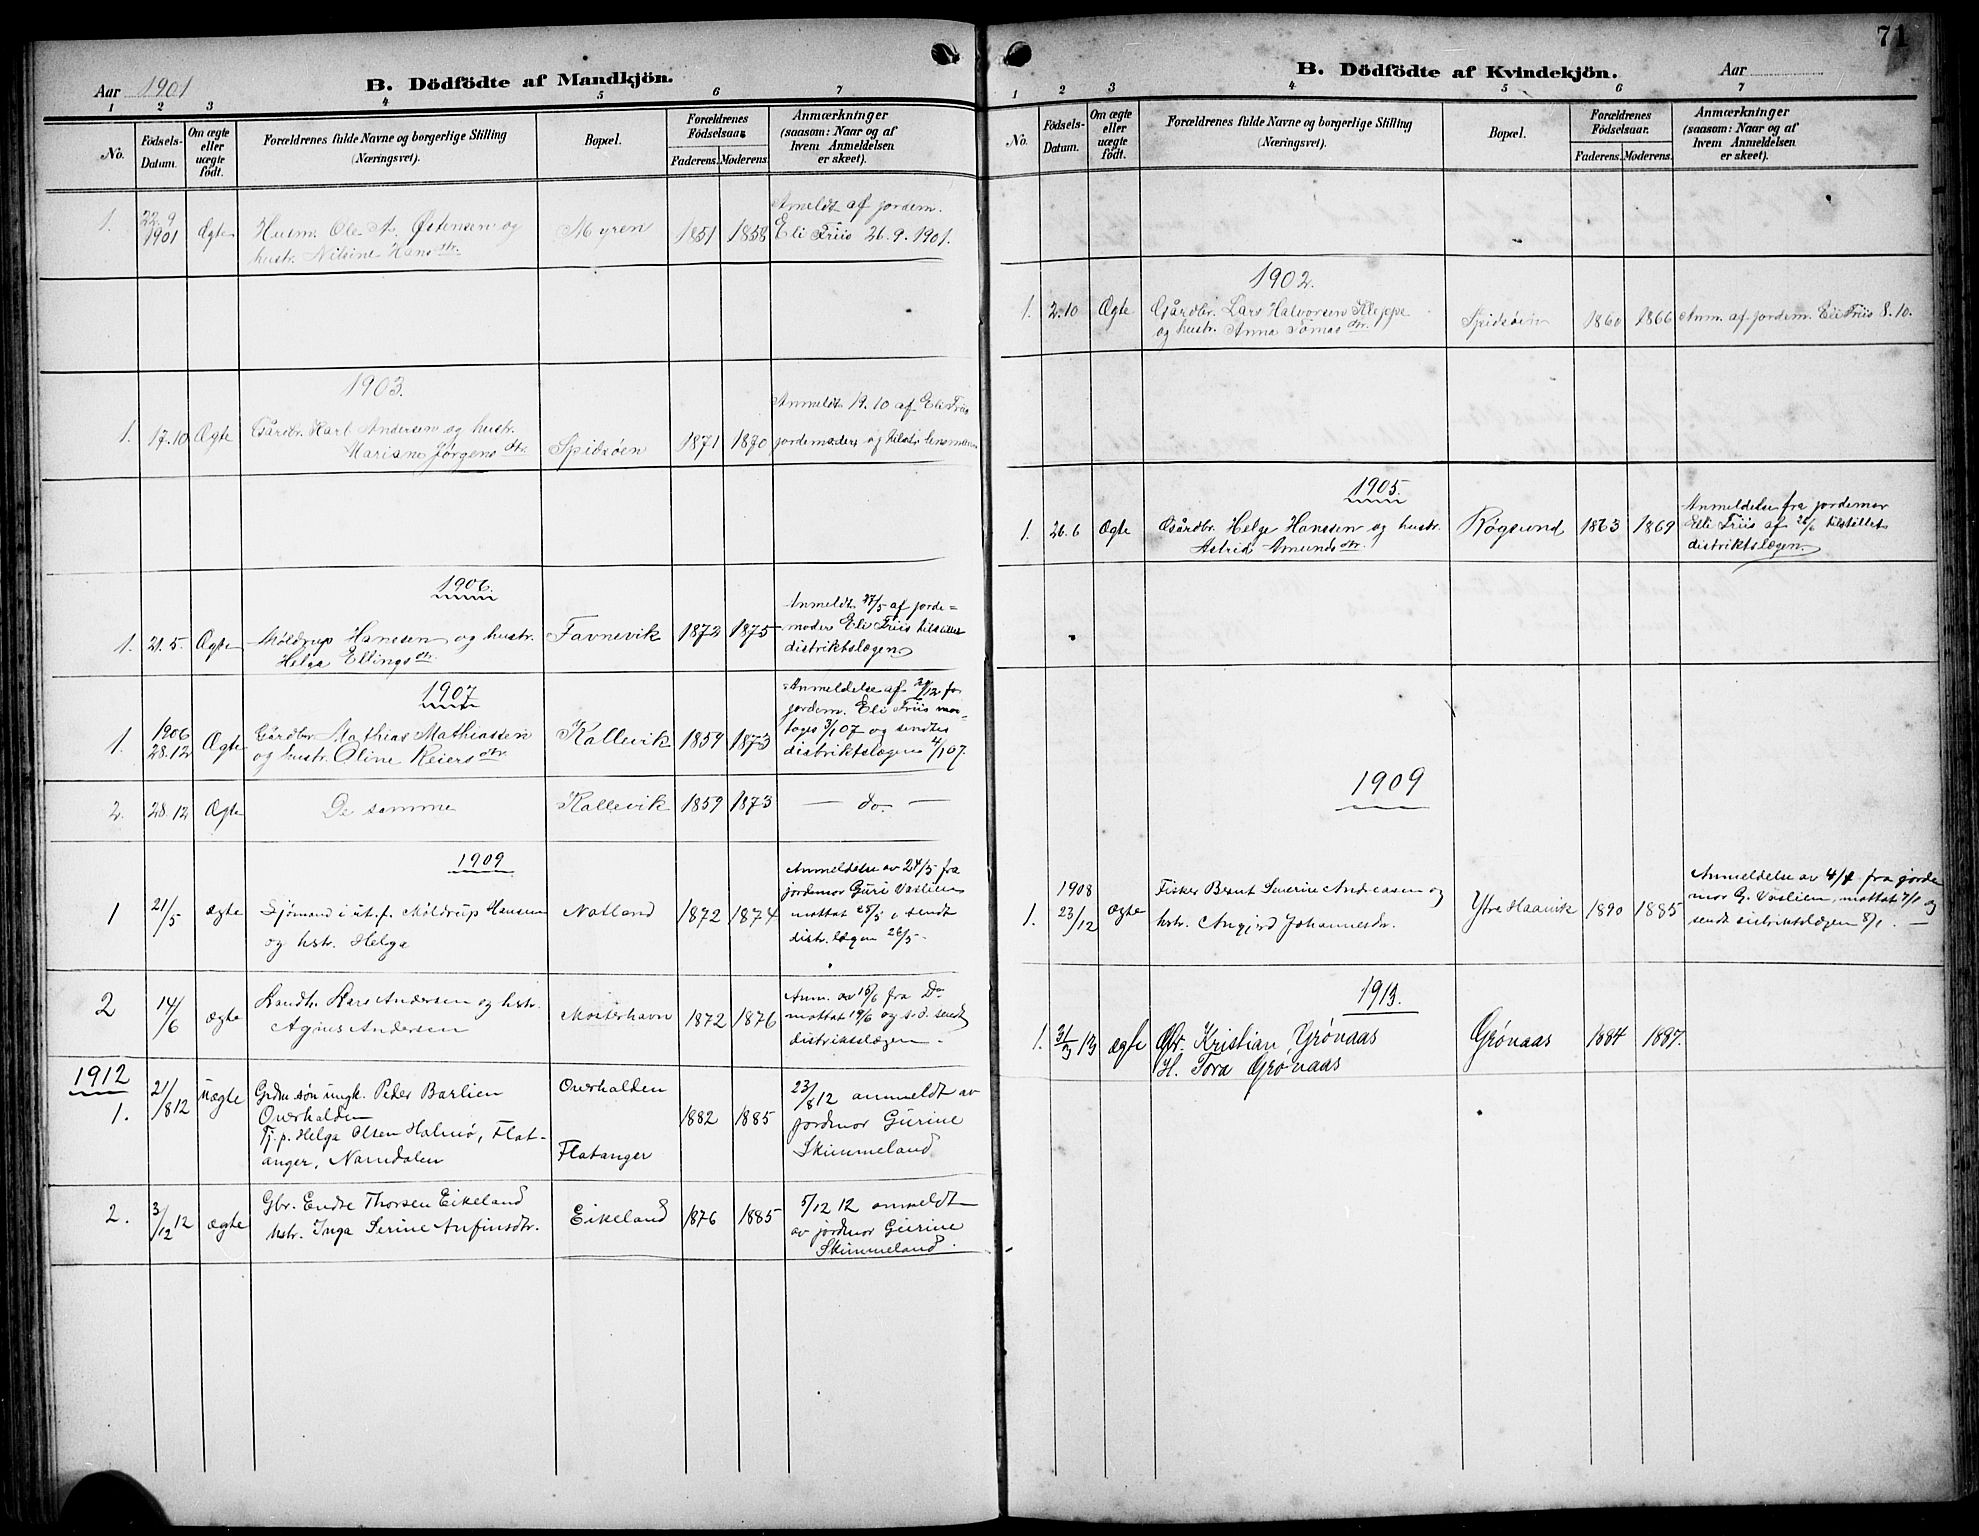 Aar 1901
B. Dödfödte af Mandkjön.
1 2 3 4 5 6 7
No.
Födsels-Datum.
Om ægte eller uægte födt.
Forældrenes fulde Navne og borgerlige Stilling (Næringsvei).
Bopæl.
Forældrenes Födselsaar.
Faderens. Moderens.
Anmærkninger (saasom: Naar og af hvem Anmeldelsen er skeet).
1. 22.9 1901 Ægte Husm. Ole A. Østensen og Myren 1851 1858 Anmeldt af jordem.
hustr. Nilsine Hansdtr. Eli Friis 26.9.1901.
1903.
1. 17.10 Ægte Gårdbr. Karl Andersen og hustr. Spidsøen 1871 1870 Anmeldt 19.10 af Eli Friis
Mariane Jørgensdtr. jordemoder og tilstr. lensmann
1906.
1. 21.5. Ægte Møldrup Hanssen og hustr. Favnevik 1872 1875 Anmeldt 27/5 af jorde=
Helga Ellingsdtr. moder Eli Friis tilstillet
distriktslægen
1907
1. 1906 28.12 Ægte Gårdbr. Mathias Mathiassen Kallevik 1859 1873 Anmeldelse af 31/12 fra
og hustr. Oline Reiersdtr. jordem. Eli Friis mot-
toges 3/1 07 og sendtes
distriktslægen 4/1 07.
2. 28.12 Ægte De samme Kallevik 1859 1873 — do. —
1909
1 21/5 ægte Sjømand i ut.f. Møldrup Hansen Natland 1872 1874 Anmeldelse av 24/5 fra
og hstr. Helga jordemor Guri Vaslien
mottat 25/5 o sendt
distr. lægen 26/5 -
2 14/6 ægte Landh. Lars Andersen og hstr. Mosterhavn 1872 1876 Anm. av 15/6 fra Do
Agnes Andersen mottat 19/6 og s.d. sendt
distriktslægen -
1912
1. 21/8 12 uægte Grdm.søn ungk. Peder Barlien Overhalden 1882 1885 23/8 12 anmeldt av
Overhalden jordmor Gurine
Tj.p. Helga Olsen Halmø, Flat- Flatanger Skimmeland
anger, Namdalen
2. 3/12 12 ægte Gbr. Endre Thorsen Eikeland Eikeland 1876 1885 5/12 12 anmeldt
hstr. Inga Serine Anfinsdtr. av jordmor Gurine
Skimmeland.
71
B. Dödfödte af Kvindekjön.
Aar
1 2 3 4 5 6 7
No.
Födsels-Datum.
Om ægte eller uægte födt.
Forældrenes fulde Navne og borgerlige Stilling (Næringsvei).
Bopæl.
Forældrenes Födselsaar.
Faderens. Moderens.
Anmærkninger (saasom: Naar og af hvem Anmeldelsen er skeet).
1902.
1. 2.10 Ægte Gårdbr. Lars Halvorsen Kleppe Spidsøen 1860 1866 Anm. af jordem. Eli Friis 8.10.
og hustr. Anna Tomasdtr.
1905.
1. 26.6 Ægte Gårdbr. Helge Hanssen og hustr. Røgsund 1863 1869 Anmeldelse fra jordemor
Astrid Amundsdtr. Elli Friis af 26/6 tilstillet
distriktslægen.
1909
1. 1908 23/12 ægte Fisker Bernt Severin Andreasen og Ytre Haavik 1890 1885 Anmeldelse av 4/1 fra jorde
hstr. Angjerd Johannesdr. mor G. Vaslien, mottat 7/1 og
sendt distriktslægen 8/1. —
1913.
1. 31/3 13 ægte Gbr. Kristian Grønaas Grønaas 1884 1887.
H. Tora Grønaas